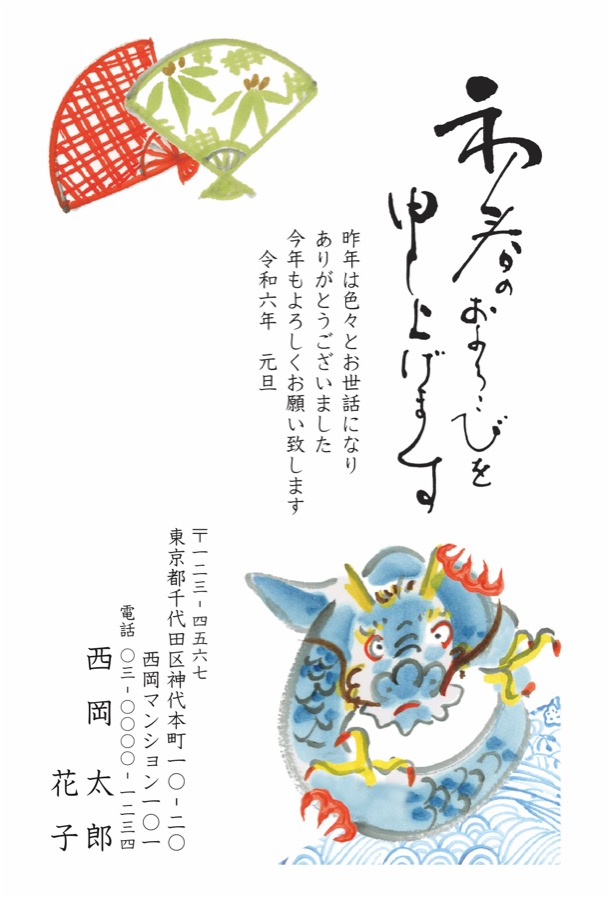 初春のおよろこびを
申し上げます
昨年は色々とお世話になり
ありがとうございました
今年もよろしくお願い致します
令和六年　元旦
〒一二三-四五六七
東京都千代田区神代本町一〇-二〇
西岡マンション一〇一
電話　〇三-〇〇〇〇-一二三四
西岡　太郎
花子